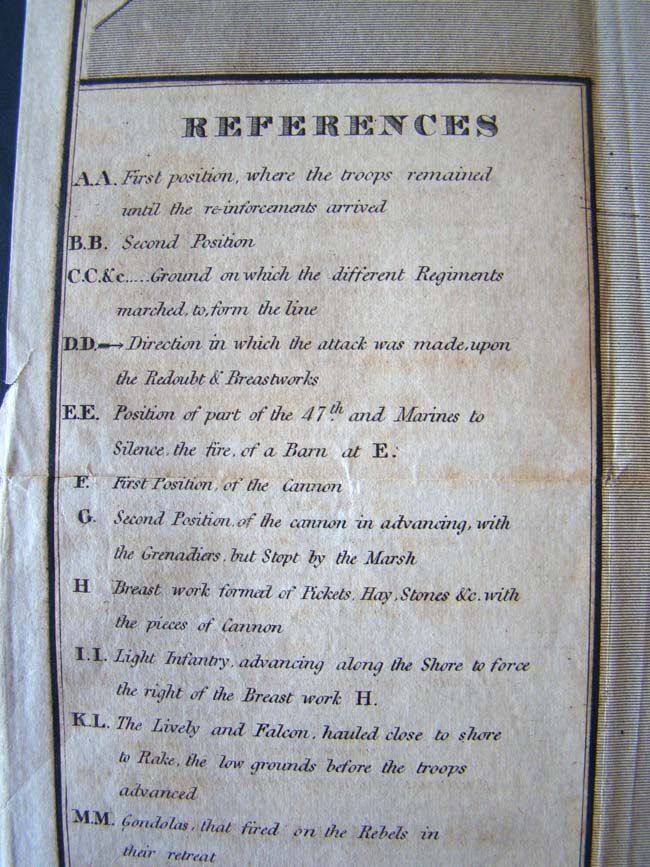 REFERENCES
A.A. First position, where the troops remained
until the re-inforcements arrived
B.B. Second Position
C.C.&c.....Ground on which the different Regiments
marched, to, form the line
D.D.→ Direction in which the attack was made, upon
the Redoubt & Breastworks
E.E. Position of part of the 47.th and Marines to
Silence, the fire, of a Barn at E.
F. First Position, of the Cannon
G. Second Position, of the cannon in advancing, with
the Grenadiers, but Stopt by the Marsh
H Breast work formed of Pickets, Hay, Stones &c. with
the pieces of Cannon
I.I. Light Infantry, advancing along the Shore to force
the right of the Breast work H.
K.L. The Lively and Falcon, hauled close to shore
to Rake, the low grounds before the troops
advanced
M.M. Gondolas, that fired on the Rebels in
their retreat